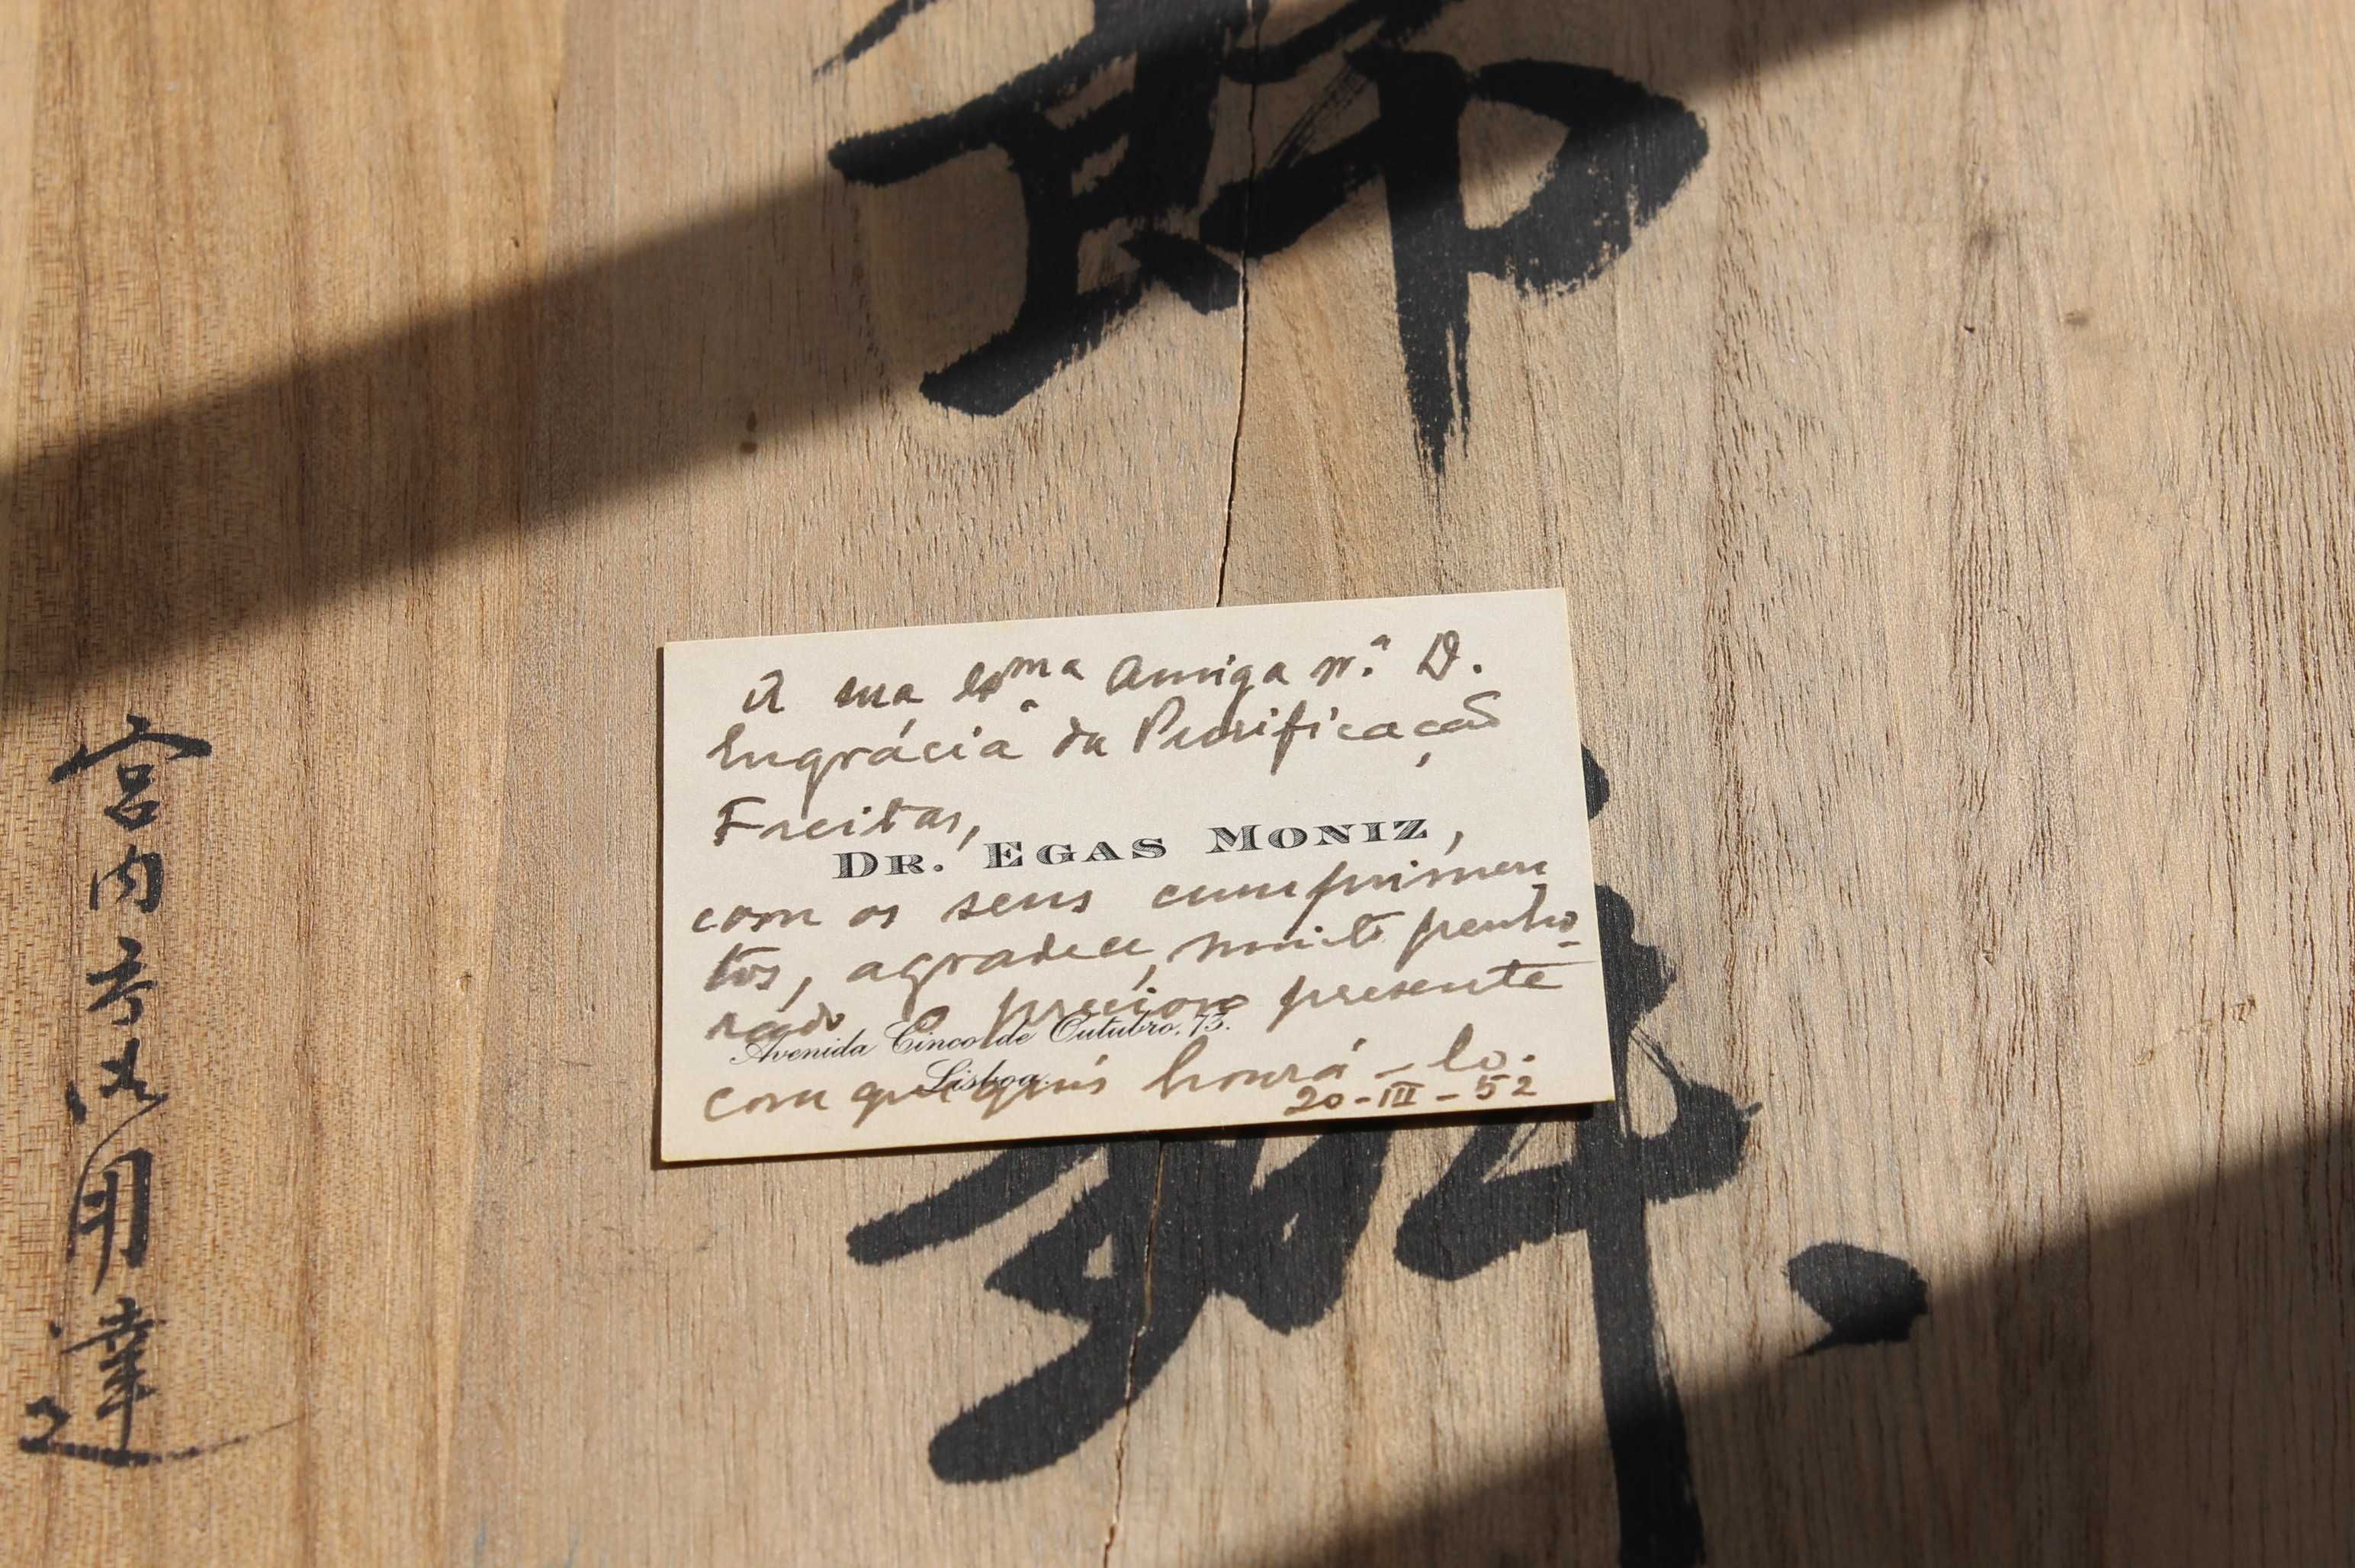 À sua Ex.ma Amiga Sr.ª D.
Engrácia da Purificação
Freitas,
DR. EGAS MONIZ,
com os seus cumprimen
tos, agradece, muito penho-
rado o precioso presente
Avenida Cinco de Outubro, 73.
Lisboa.
com que quis honrá-lo.
20-III-52
宮内省御用達